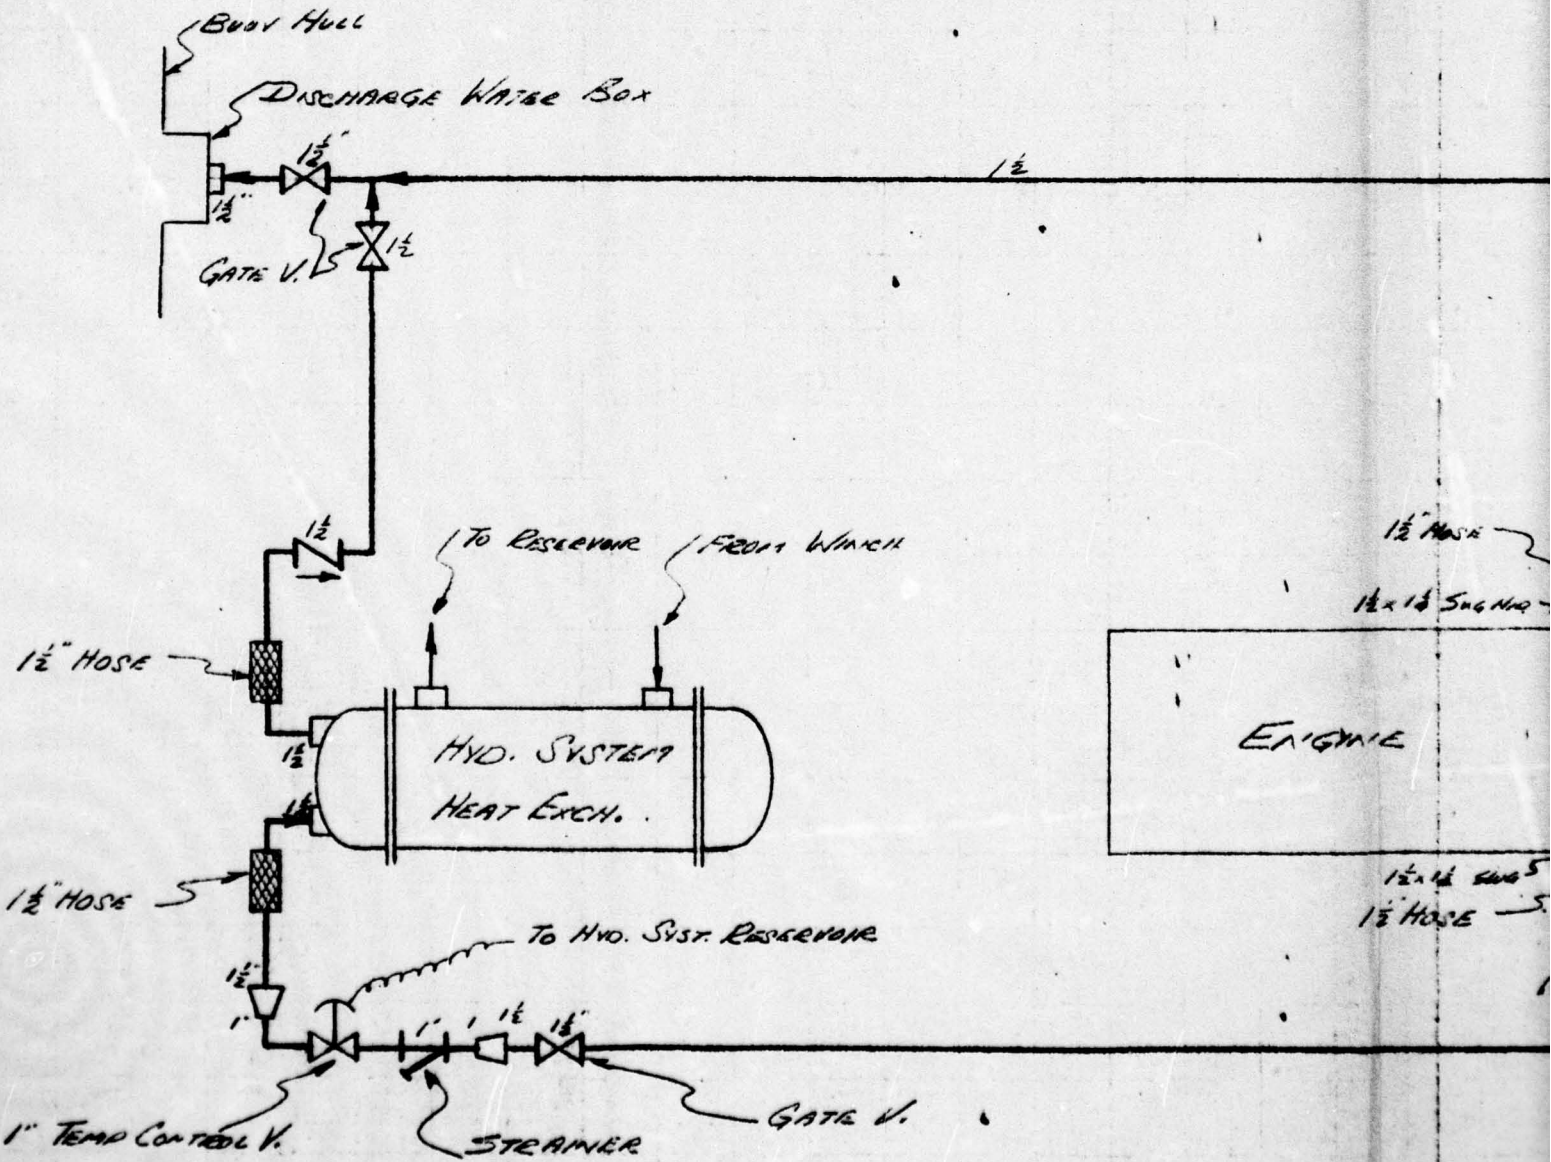 BUOY HULL
DISCHARGE WATER BOX
1½"
1½
1½"
1½
GATE V.
1½
TO RESERVOIR
FROM WINCH
1½" HOSE
1½ x 1¼ SWG NIP
1½" HOSE
HYD. SYSTEM
HEAT EXCH.
ENGINE
1½
1½
1½" HOSE
1½ x 1¼ SWG
1½" HOSE
TO HYD. SYST. RESERVOIR
1½"
1"
1"
1
1½
1½"
1" TEMP CONTROL V.
STRAINER
GATE V.